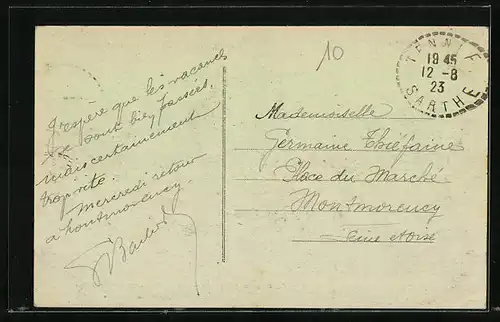 J'espère que les vacances
se sont bien passées,
mais certainement
trop vite.
Mercredi retour
à Montmorency
10
TENNIE
19 45
12 - 8
23
SARTHE
Mademoiselle
Germaine Thiefaine
Place du Marché
Montmorency
Seine et Oise